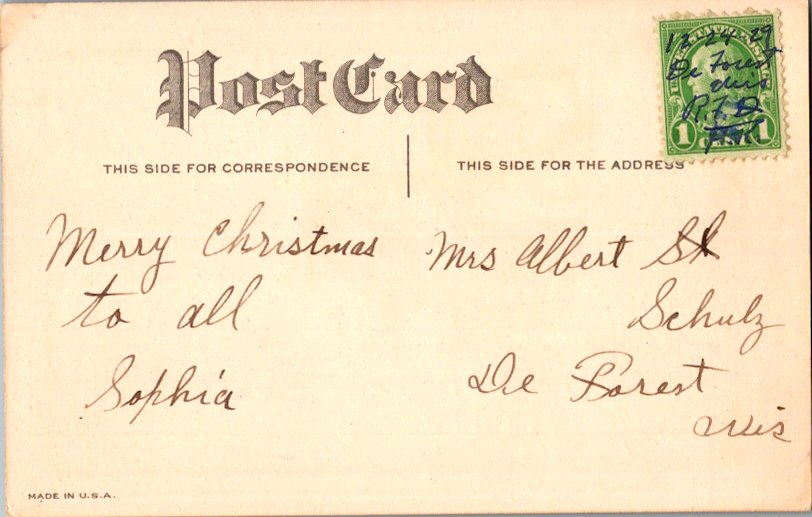 Post Card
THIS SIDE FOR CORRESPONDENCE
THIS SIDE FOR THE ADDRESS
12 24 29
De Forest
Wis
R.F.D.
1 1
Merry Christmas
to all
Sophia
Mrs Albert
Schulz
De Forest
Wis
MADE IN U.S.A.